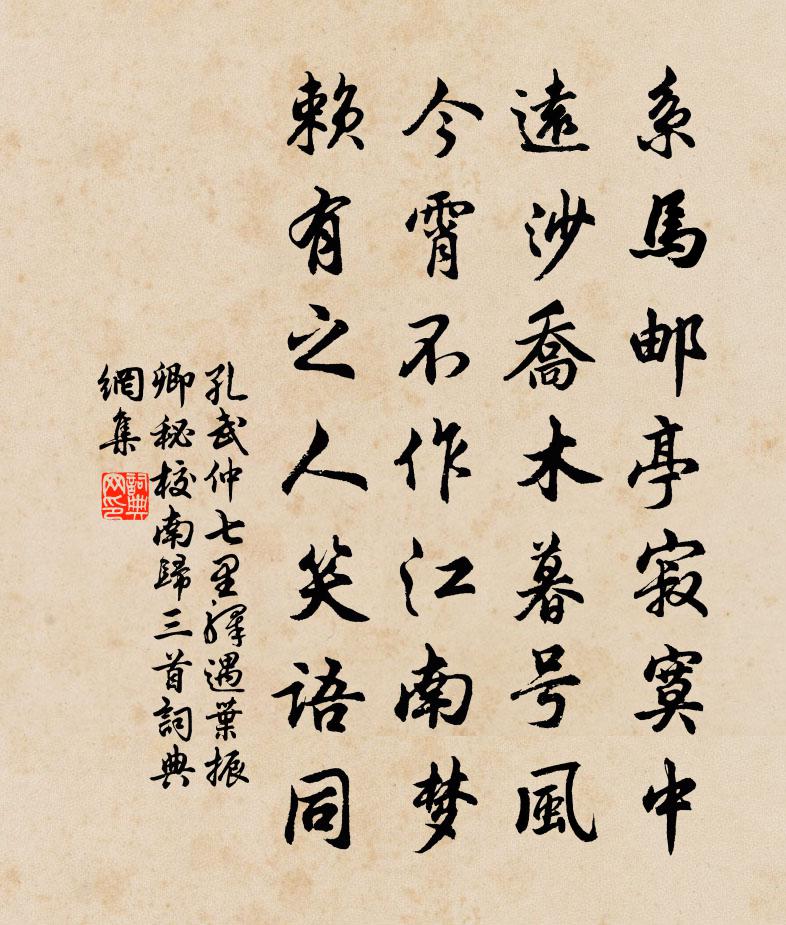 系馬邮亭寂寞中
遠沙喬木暮号風
今霄不作江南梦
賴有之人笑語同
孔武仲七里驛遇葉振
卿秘校南歸三首詞典
網集
詞典网印